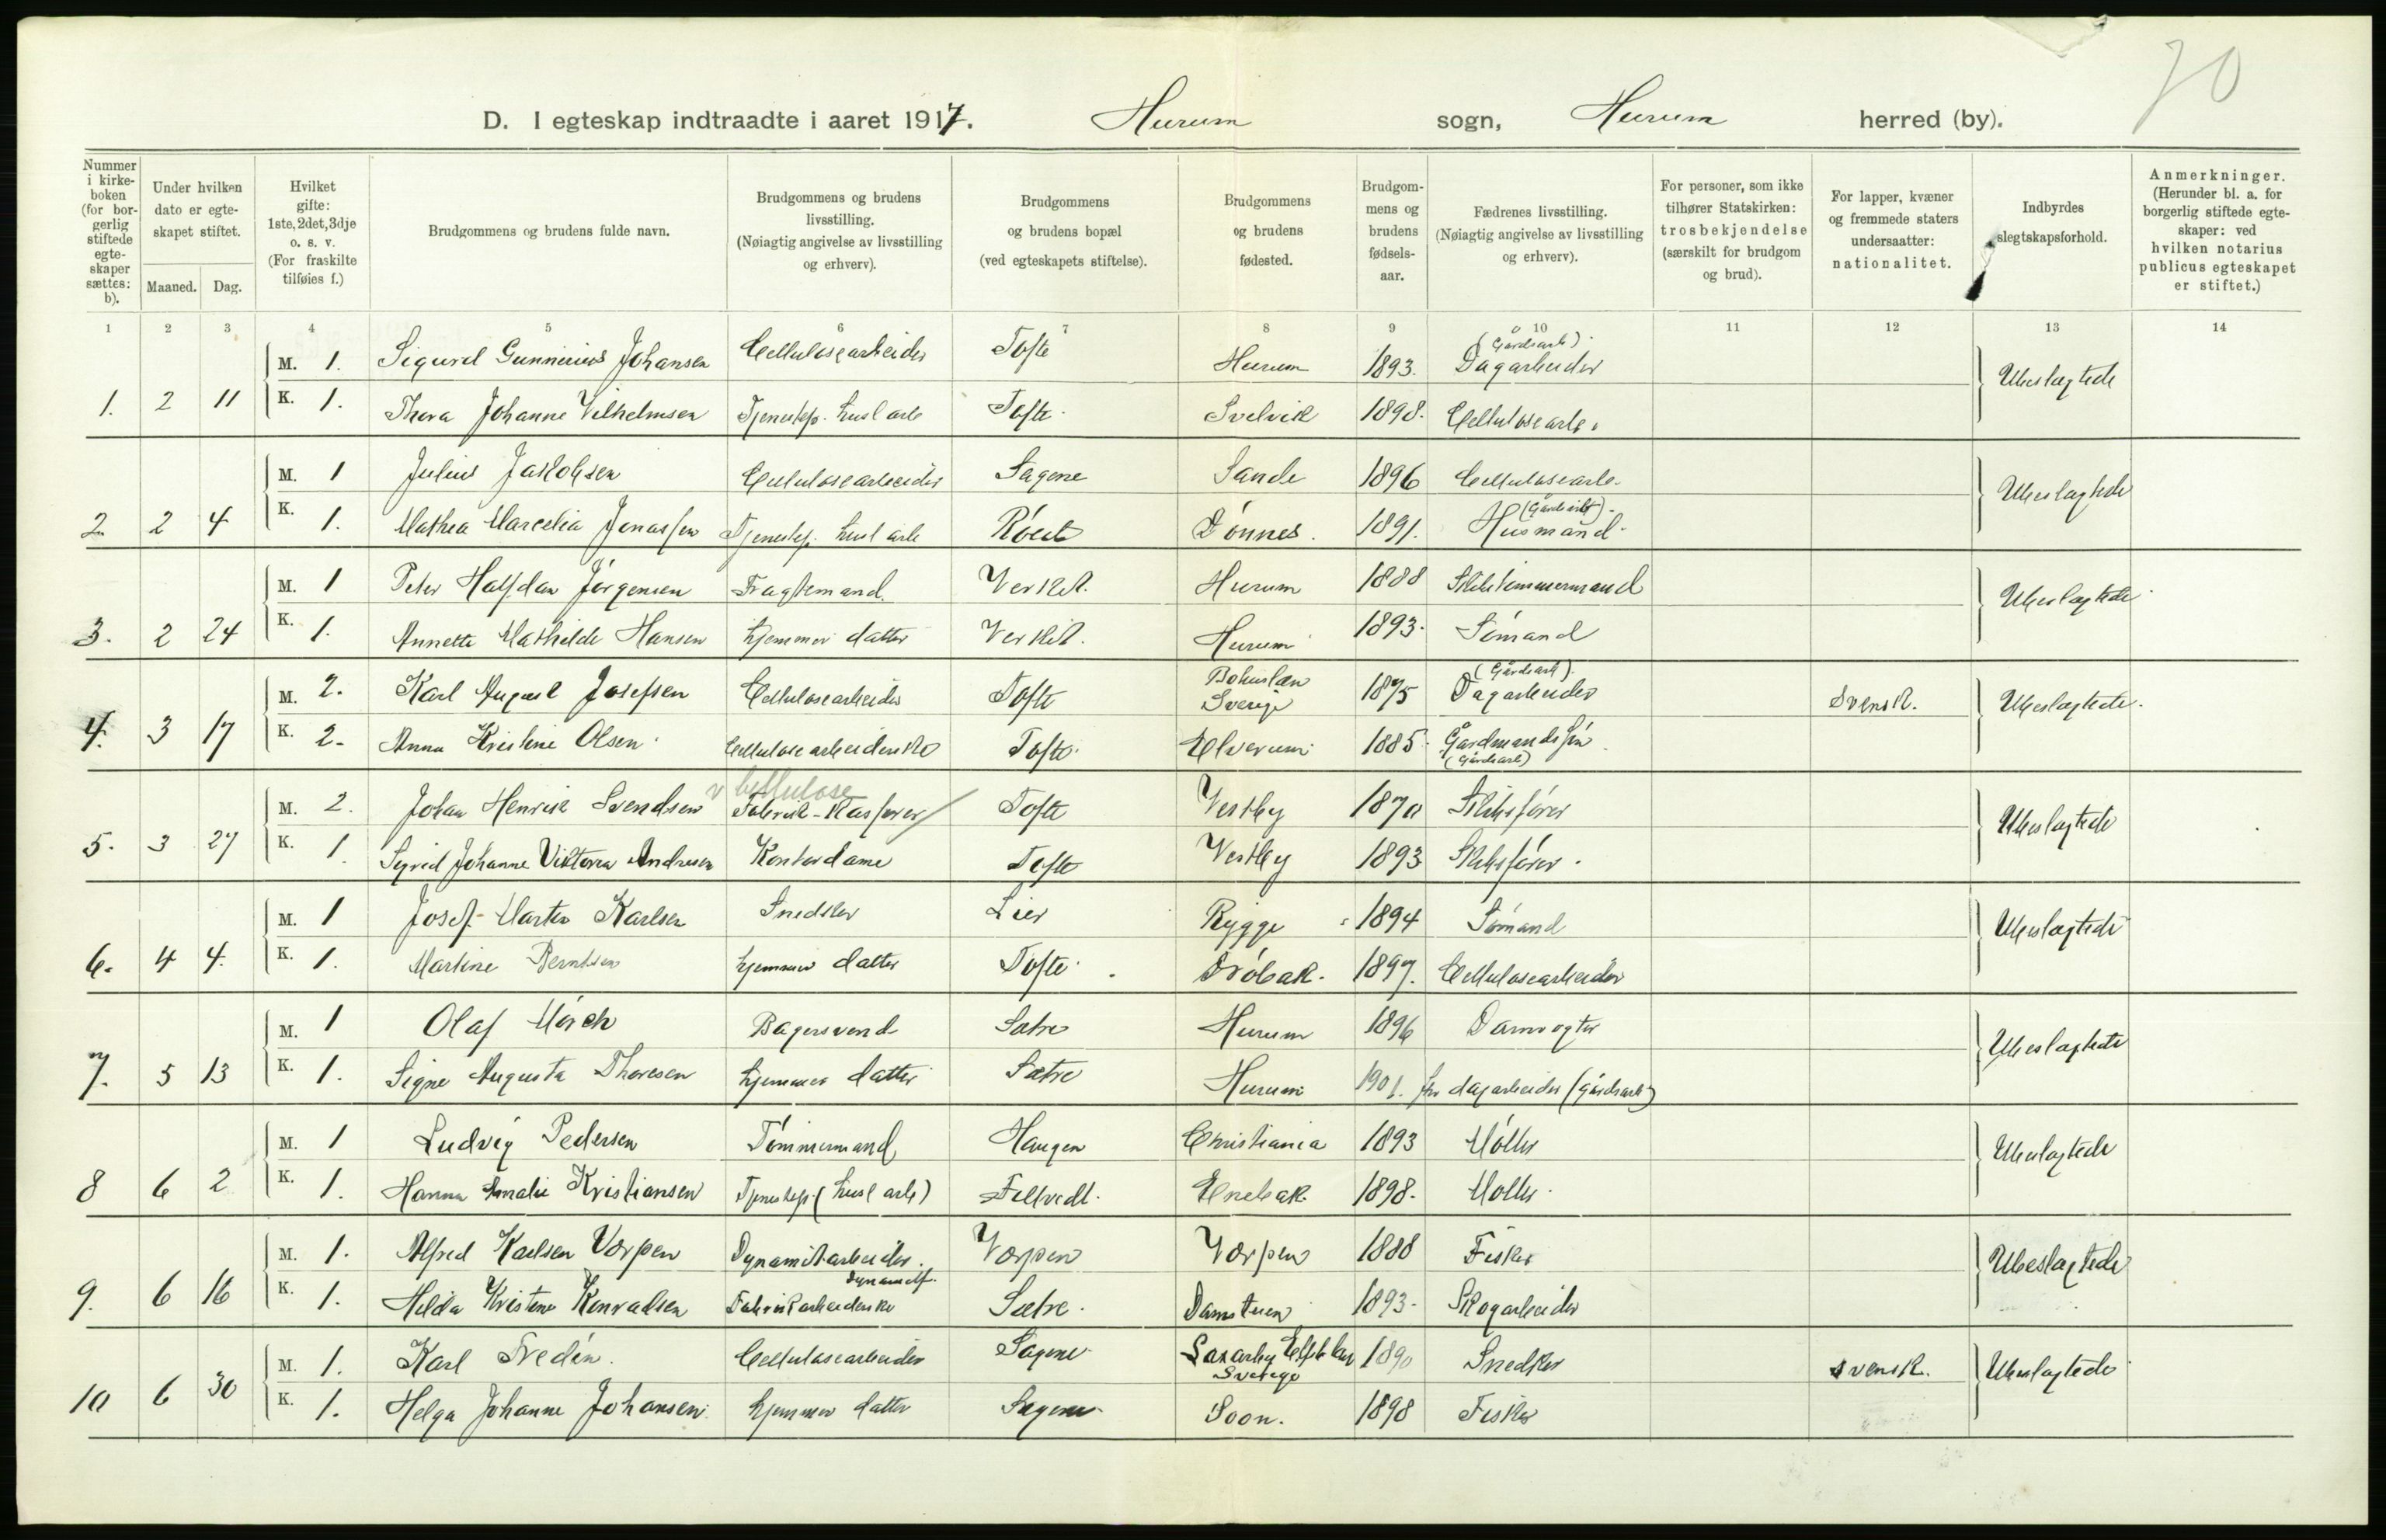 70
D. I egteskap indtraadte i aaret 1917. Hurum sogn, Hurum herred (by).
Nummer i kirke-boken (for bor-gerlig stiftede egte-skaper sættes: b).
Under hvilken dato er egte-skapet stiftet.
Maaned. Dag.
Hvilket gifte: 1ste, 2det, 3dje o. s. v. (For fraskilte tilføies f.)
Brudgommens og brudens fulde navn.
Brudgommens og brudens livsstilling. (Nøiagtig angivelse av livsstilling og erhverv).
Brudgommens og brudens bopæl (ved egteskapets stiftelse).
Brudgommens og brudens fødested.
Brudgom-mens og brudens fødsels-aar.
Fædrenes livsstilling. (Nøiagtig angivelse av livsstilling og erhverv).
For personer, som ikke tilhører Statskirken: trosbekjendelse (særskilt for brudgom og brud).
For lapper, kvæner og fremmede staters undersaatter: nationalitet.
Indbyrdes slegtskapsforhold.
Anmerkninger. (Herunder bl. a. for borgerlig stiftede egte-skaper: ved hvilken notarius publicus egteskapet er stiftet.)
1 2 3 4 5 6 7 8 9 10 11 12 13 14
(Gårdsarb).
M. 1. Sigurd Gunnerius Johansen Cellulosearbeider Tofte Hurum 1893. Dagarbeider Ubeslægtede
1. 2 11 K. 1. Thora Johanne Vilhelmsen Tjenestep. husl arb Tofte. Svelvik 1898. Cellulosearb.
M. 1 Julius Jacobsen Cellulosearbeider Sagene Sande 1896 Cellulosearb. Ubeslægtede
2. 2 4 K. 1. Mathea Marcelia Jonassen Tjenestep. husl arb Dønnes. 1891. Husmand.
M. 1 Peter Halfdan Jørgensen Fragtemand. Verket. Hurum 1888 Skibstømmermand Ubeslægtede
3. 2 24 K. 1. Annette Mathilde Hansen hjemmev datter Verket. Hurum 1893. Sømand
(Gårdsarb).
M. 2. Karl August Josefsen Cellulosearbeider Tofte Bohuslen Sverige 1875 Dagarbeider Svensk. Ubeslægtede.
4. 3 17 K. 2. Anna Kristine Olsen Cellulosearbeiderske Tofte. Elverum 1885. Gårdmands
(Gårdsarb)
v Cellulose
M. 2. Johan Henrik Svendsen Fabrik-Tofte Vestby 1870 Skibsfører Ubeslægtede
5. 3 27 K. 1. Sigrid Johanne Viktoria Andresen Kontordame Tofte Vestby 1893 Skibsfører.
M. 1 Josef Martin Karlsen Snedker Lier Rygge 1894 Sømand Ubeslægtede
6. 4 4. K. 1. Martine Berntsen hjemmev datter Tofte. Drøbak. 1897. Cellulosearbeider
M. 1 Olaf Mørch Bagersvend Sætre Hurum 1896 Damvogter Ubeslægtede
7. 5 13 K. 1. Signe Augusta Thoresen hjemmev datter Sætre Hurum 1901. fhv dagarbeider (gårdsarb)
M. 1 Ludvig Pedersen Tømmermand Haugen Christiania 1893 Møller Ubeslægtede
8 6 2 K. 1. Hanna Amalie Kristiansen Tjenestep. (husl arb) Filtvedt. Enebak 1898. Møller.
M. 1. Alfred Karlsen Værpen Dynamitarbeider. Værpen Værpen 1888 Fisker Ubeslægtede
dynamitf.
9. 6 16 K. 1. Hilda Kristine Konradsen Fabrikarbeiderske Sætre. Damstuen 1893. Skogarbeider
M. 1. Karl Fredin. Cellulosearbeider Sagene Sverege 1890 Snedker svensk. Ubeslægtede
10 6 30 K. 1. Helga Johanne Johansen hjemmev datter Sagene Soon. 1898 Fisker